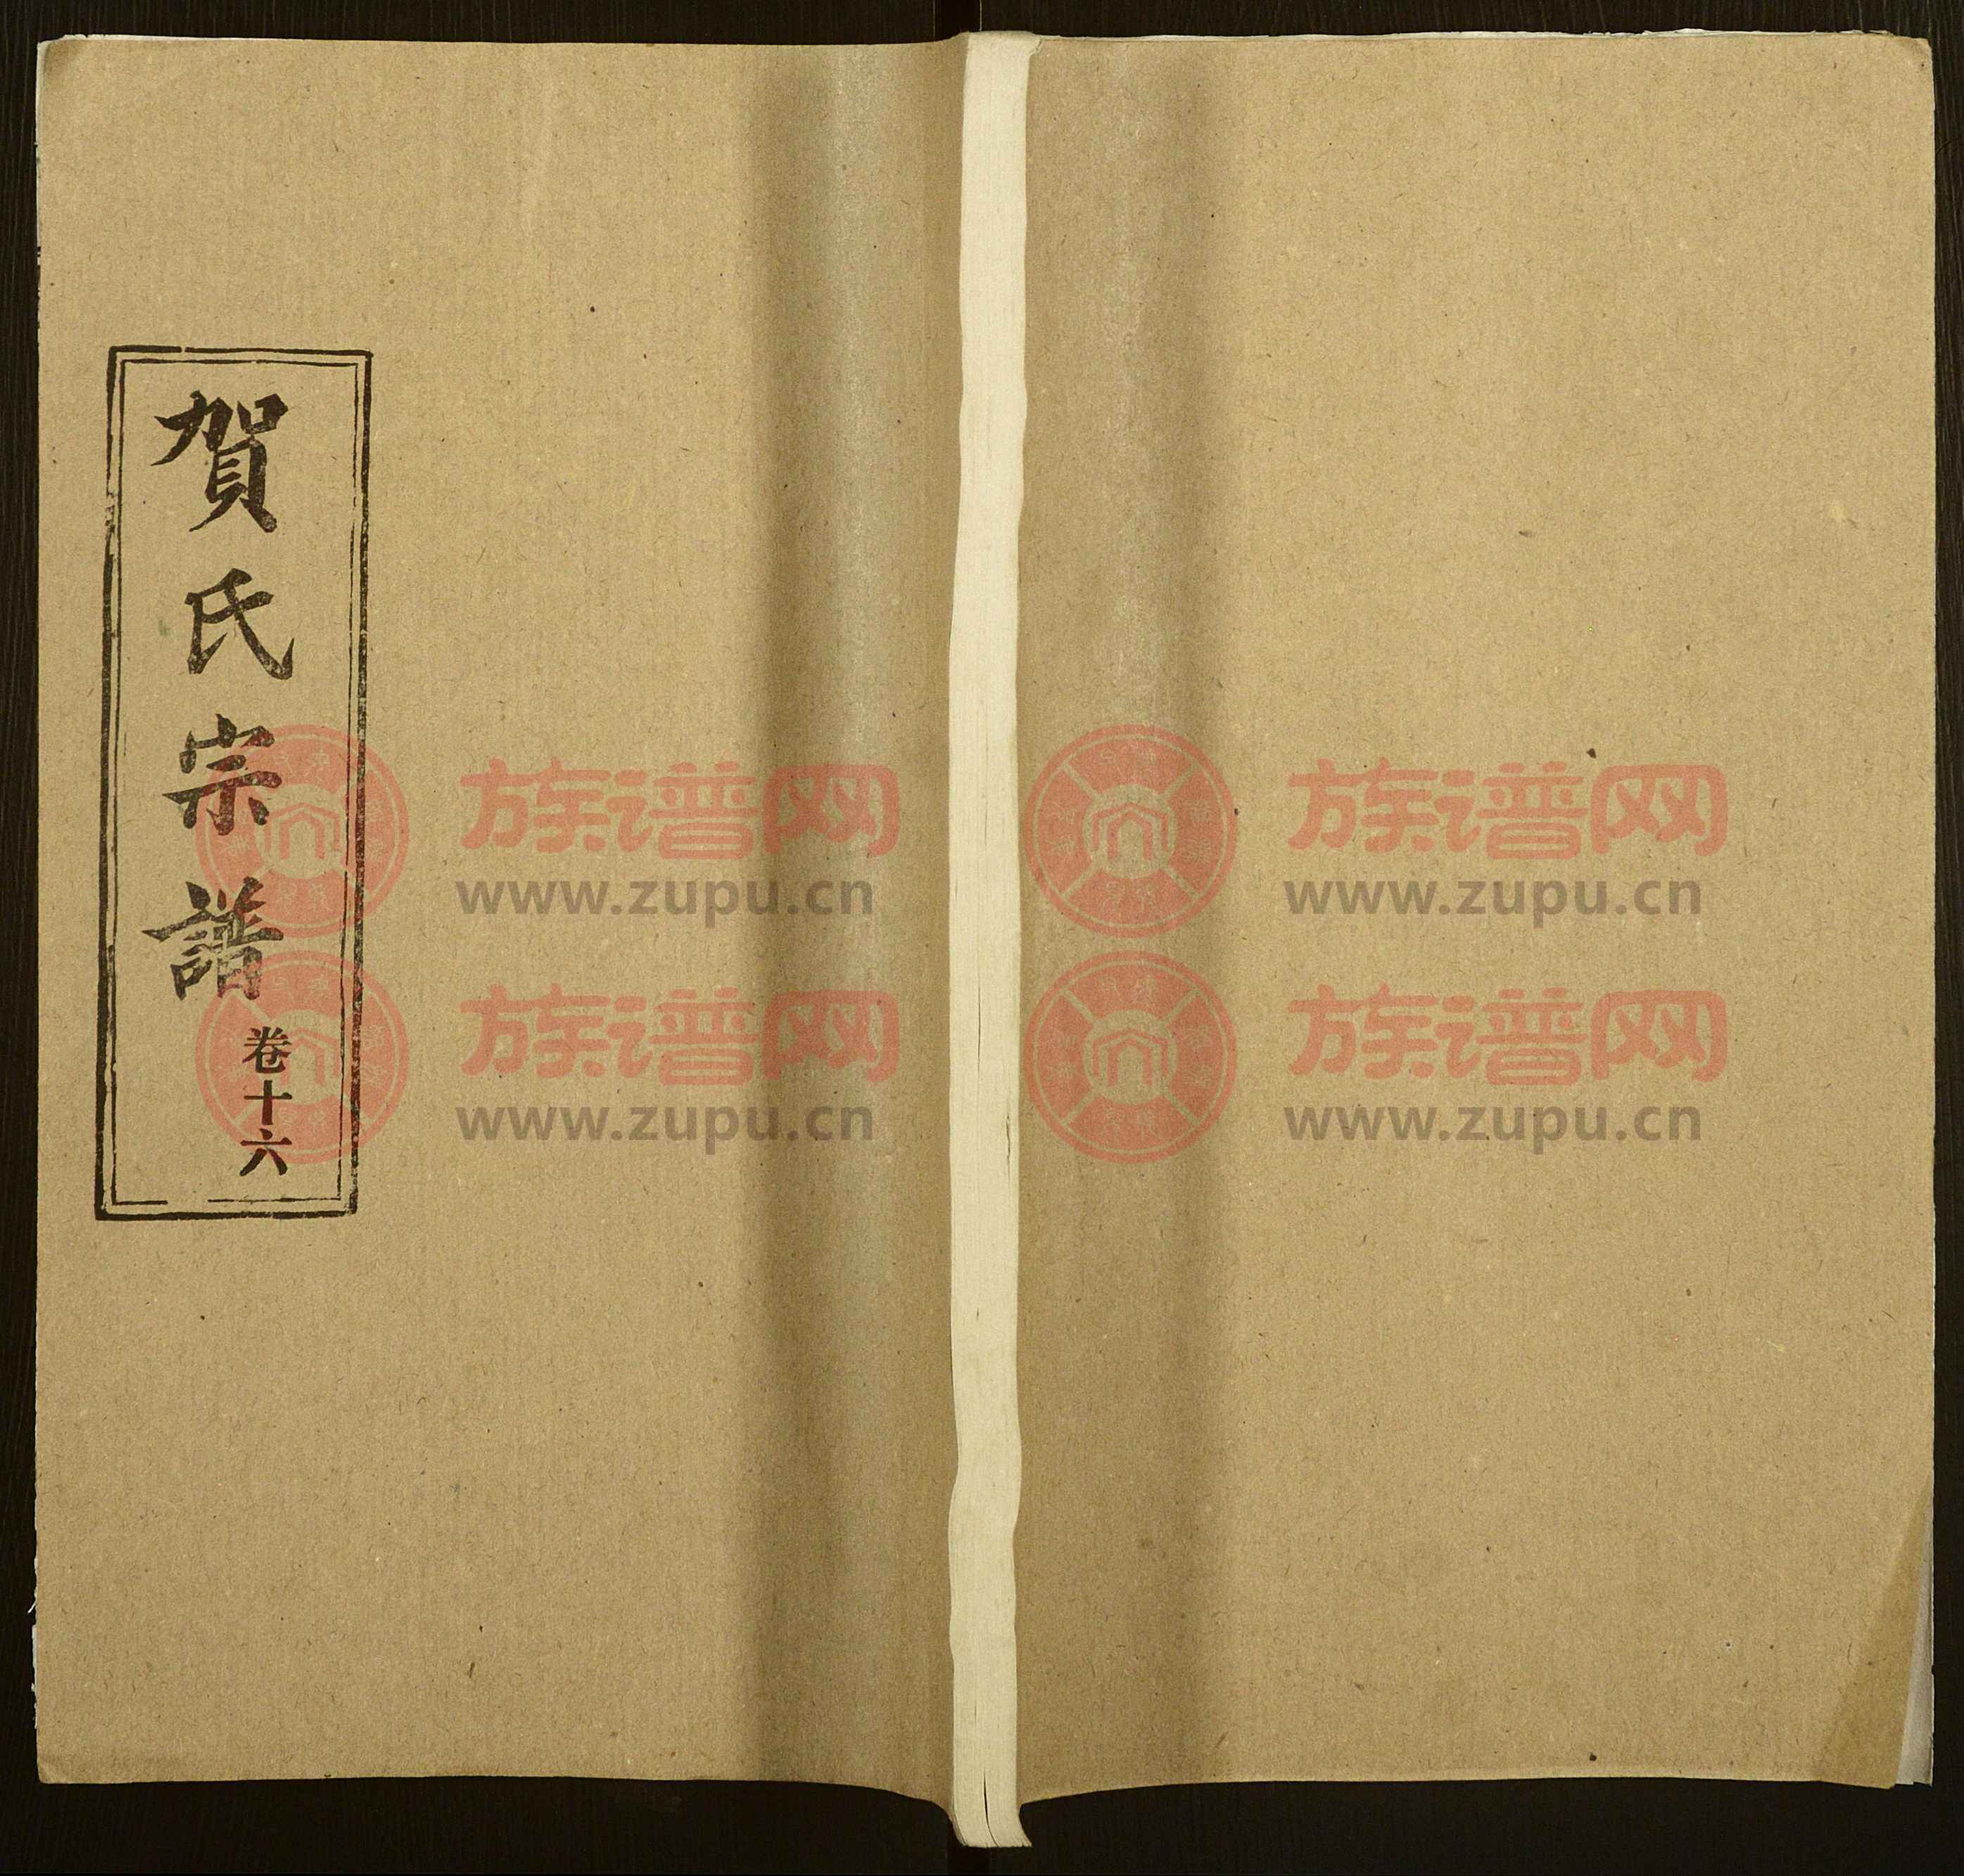 賀氏宗譜
卷十六
族谱网
www.zupu.cn
族谱网
www.zupu.cn
族谱网
www.zupu.cn
族谱网
www.zupu.cn